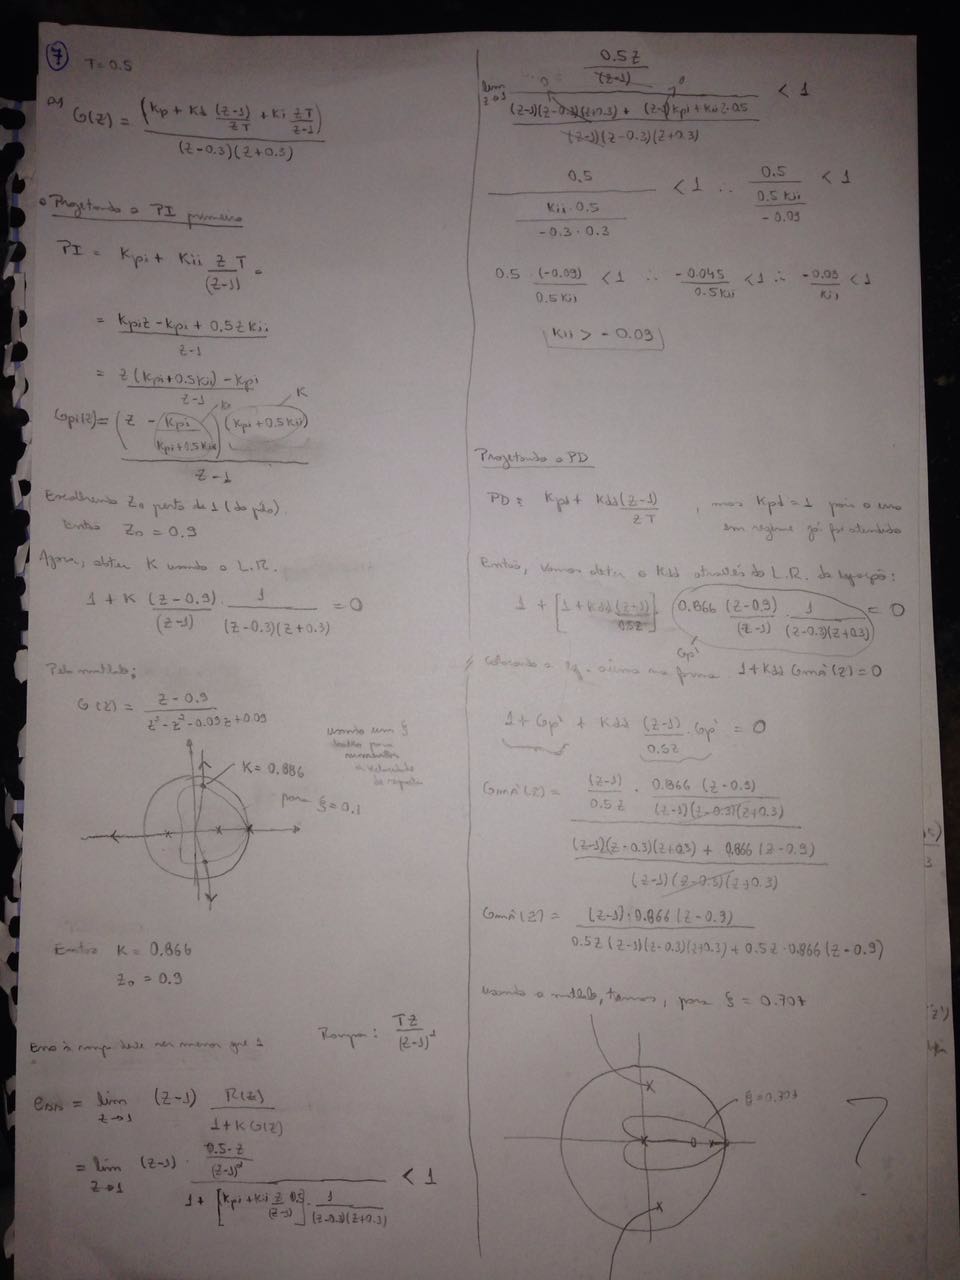 7 T=0.5
G(z) = (Kp + Kd (z-1)/(zT) + Ki zT/(z-1)) / ((z-0.3)(z+0.3))
Projetando o PI primeiro
PI = Kpi + Kii z T/(z-1) =
= (Kpiz - Kpi + 0,5z Kii)/(z-1)
= (z(Kpi+0.5Kii) - Kpi)/(z-1)
K
Gpi(z) = (z - Kpi/(Kpi+0.5Kii)) (Kpi+0.5Kii) / (z-1)
Escolhendo Zo perto de 1 (do pólo).
Então Zo = 0.9
Agora, obter K usando o L.R.
1 + K (z-0.9)/(z-1) · 1/((z-0.3)(z+0.3)) = 0
Pelo matlab;
G(z) = (z-0.9)/(z³-z²-0.09z+0.09)
usando um ξ
baixo para
aumentar
a velocidade
da resposta
K=0.886
para ξ=0.1
Então K = 0.866
Zo = 0.9
Erro à rampa deve ser menor que 1
Rampa: Tz/(z-1)²
ess = lim z→1 (z-1) R(z)/(1+KG(z))
= lim z→1 (z-1) · (0.5·z/(z-1)²) / (1 + [Kpi+Kii z 0.5/(z-1)] · 1/((z-0.3)(z+0.3))) < 1
lim z→1 (0.5z/(z-1)) / (((z-1)(z-0.3)(z+0.3) + (z-1)Kpi+Kii z·0.5)/((z-1)(z-0.3)(z+0.3))) < 1
0 0
0.5/(Kii·0.5/(-0.3·0.3)) < 1 ∴ 0.5/(0.5Kii/-0.09) < 1
0.5 · (-0.09)/(0.5Kii) < 1 ∴ -0.045/(0.5Kii) < 1 ∴ -0.09/Kii < 1
Kii > -0.09
Projetando o PD
PD = Kpd + Kdd(z-1)/(zT) , mas Kpd=1 pois o erro
em regime já foi atendido
Então, vamos obter o Kdd através do L.R. da equação:
1 + [1+Kdd(z-1)/(0.5z)] · 0.866 (z-0.9)/(z-1) · 1/((z-0.3)(z+0.3)) = 0
Gpi
Colocando a eq. acima na forma 1+Kdd Gma(z)=0
1+Gpi + Kdd (z-1)/(0.5z) · Gpi = 0
Gma(z) = ((z-1)/(0.5z) · 0.866(z-0.9)/((z-1)(z-0.3)(z+0.3))) / (((z-1)(z-0.3)(z+0.3) + 0.866(z-0.9))/((z-1)(z-0.3)(z+0.3)))
Gma(z) = (z-1)·0.866(z-0.9) / (0.5z(z-1)(z-0.3)(z+0.3) + 0.5z·0.866(z-0.9))
usando o matlab, temos, para ξ=0.707
ξ=0.707
?